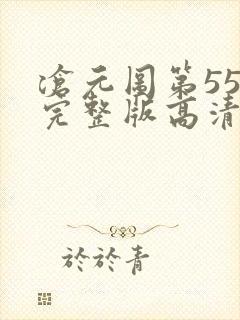 滄元圖第55
完整版高清
於於青